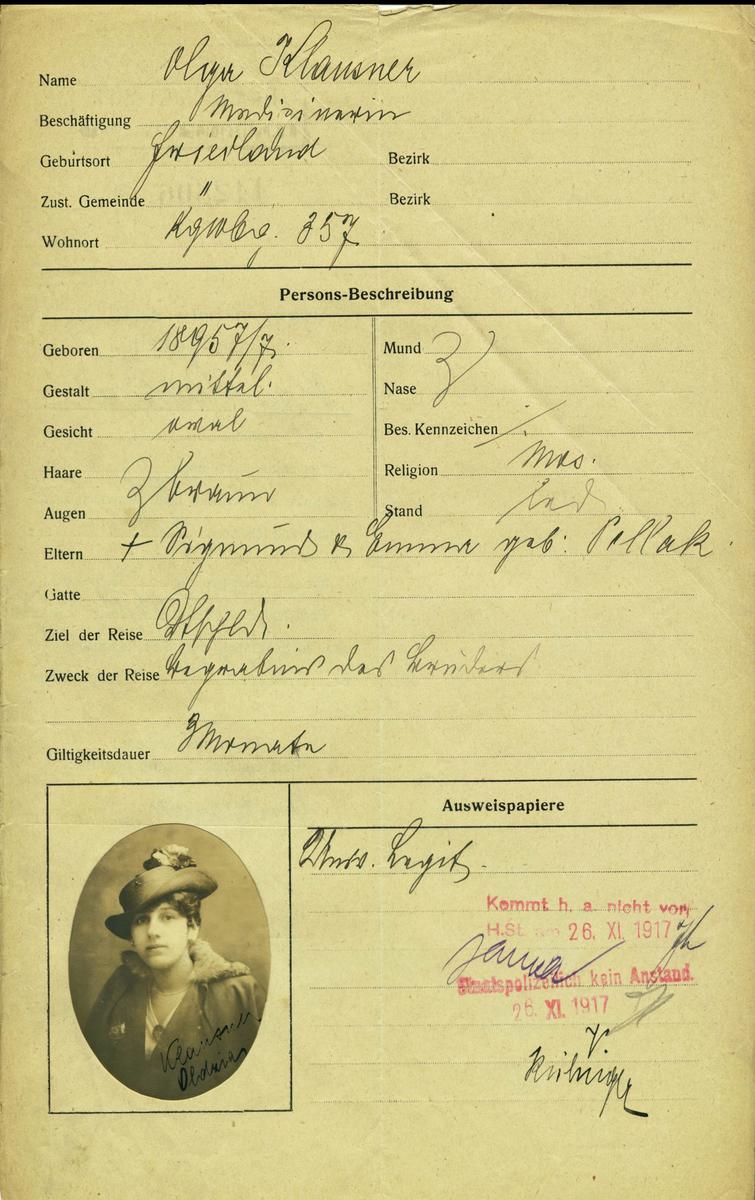 Name Olga Klausner
Beschäftigung Medizinerin
Geburtsort Friedland Bezirk
Zust. Gemeinde " Bezirk
Wohnort Kgwbg. 357
Persons-Beschreibung
Geboren 1895 7/7. Mund
Gestalt mittel. Nase
Gesicht oval Bes. Kennzeichen /
Haare Religion mos.
braun
Augen Stand led.
Eltern + Sigmund & Emma geb: Pollak.
Gatte
Ziel der Reise Dtschld.
Zweck der Reise Begräbnis des Bruders
Giltigkeitsdauer 3 Monate
Ausweispapiere
Univ. Legit.
Kommt h. a. nicht vor,
H.St. am 26. XI. 1917
Staatspolizeilich kein Anstand.
26. XI. 1917
Klausner